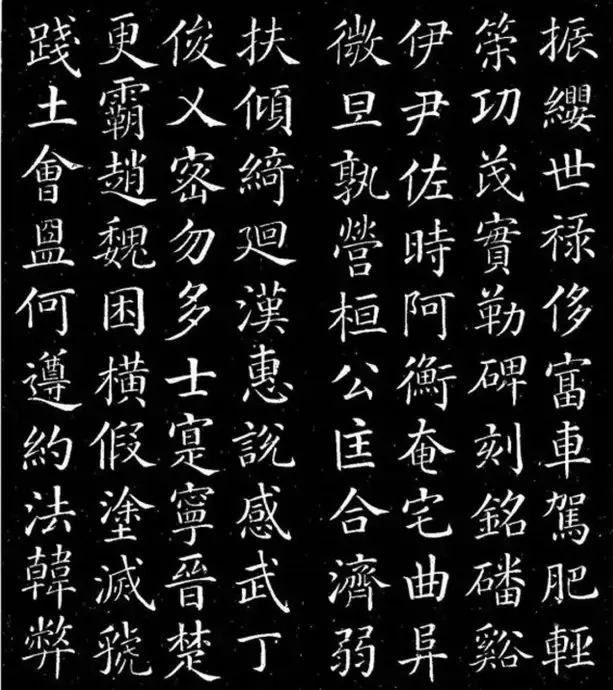 振纓世禄侈富車駕肥輕
策功茂實勒碑刻銘磻谿
伊尹佐時阿衡奄宅曲阜
微旦孰營桓公匡合濟弱
扶傾綺廻漢惠說感武丁
俊乂密勿多士寔寧晉楚
更霸趙魏困橫假塗滅虢
踐土會盟何遵約法韓弊